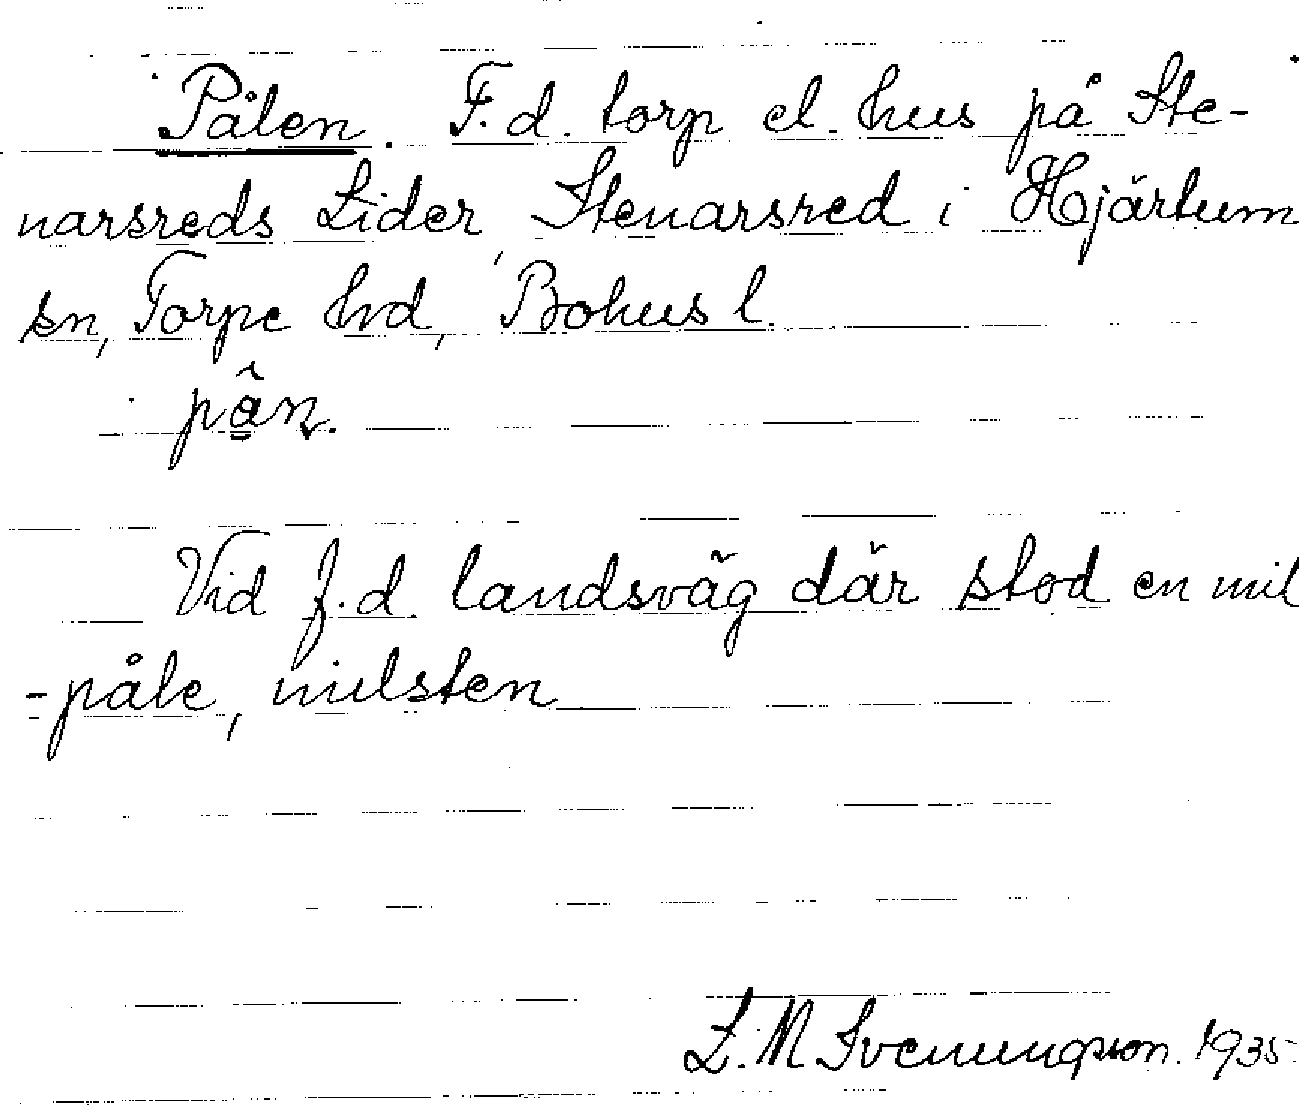 Pålen. F.d. torp el. hus på Ste-
narsreds Lider, Stenarsred i Hjärtum
sn, Torpe hrd, Bohus l.
pân.
Vid f.d. landsväg där stod en mil
-påle, milsten
L.M. Svenungsson. 1935